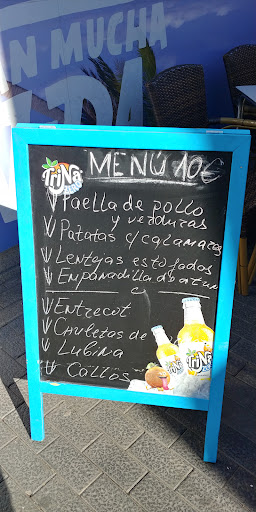 N MUCHA
TriNa
MENÚ 10€
Paella de pollo
y verduras
Patatas c/ calamares
Lentejas estofados
Empanadilla de atun
Entrecot
Chuletas de
Lubina
Callos
TriNa